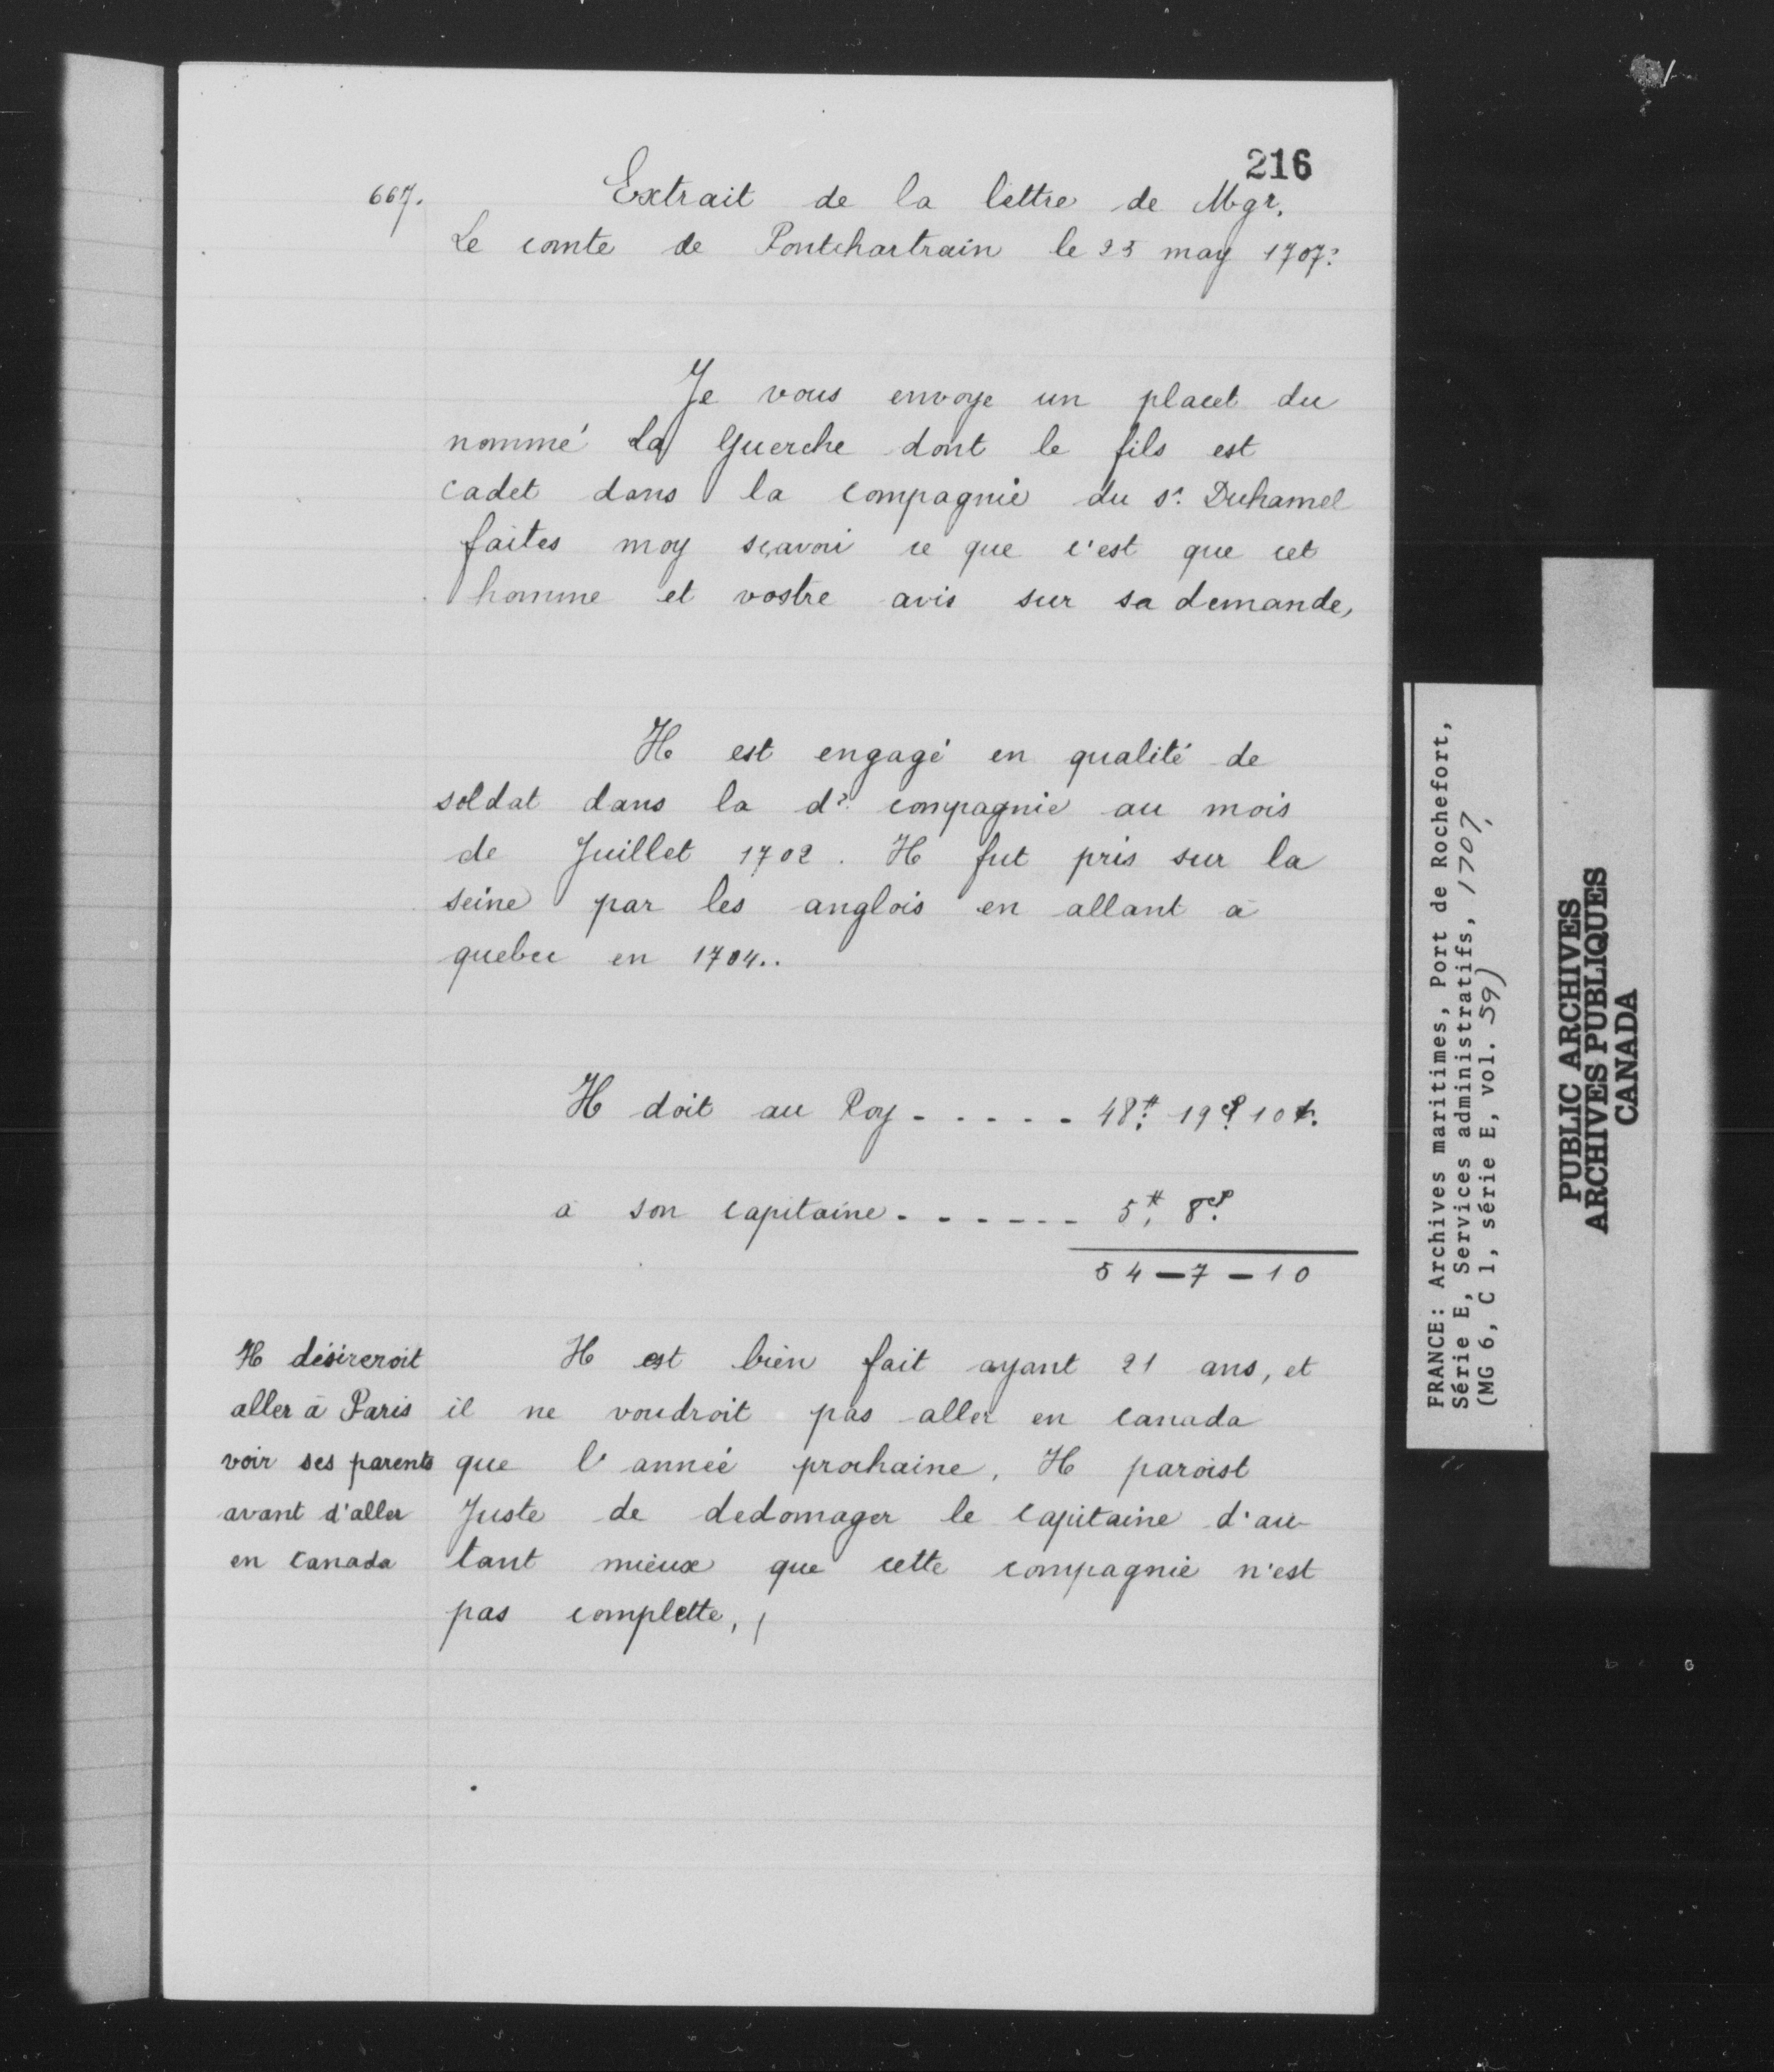 216
667.
Extrait de la lettre de Mgr.
Le comte de Pontchartrain le 23 may 1707:
Je vous envoye un placet du
nommé La Guerche dont le fils est
cadet dans la compagnie du Sr. Duhamel
faites moy sçavoir ce que c'est que cet
homme et vostre avis sur sa demande,
Il est engagé en qualité de
soldat dans la de. compagnie au mois
de Juillet 1702. Il fut pris sur la
seine par les anglois en allant à
quebec en 1704..
Il doit au Roy - - - - - 48# 19s 10d.
à son capitaine - - - - - - 5# 8s
54-7-10
Il désireroit
aller à Paris
voir ses parents
avant d'aller
en Canada
Il est bien fait ayant 21 ans, et
il ne voudroit pas aller en Canada
que l'année prochaine. Il paroist
Juste de dedomager le Capitaine d'au-
tant mieux que cette compagnie n'est
pas complette, /
FRANCE: Archives maritimes, Port de Rochefort,
Série E, Services administratifs, 1707,
(MG 6, C 1, série E, vol. 59)
PUBLIC ARCHIVES
ARCHIVES PUBLIQUES
CANADA